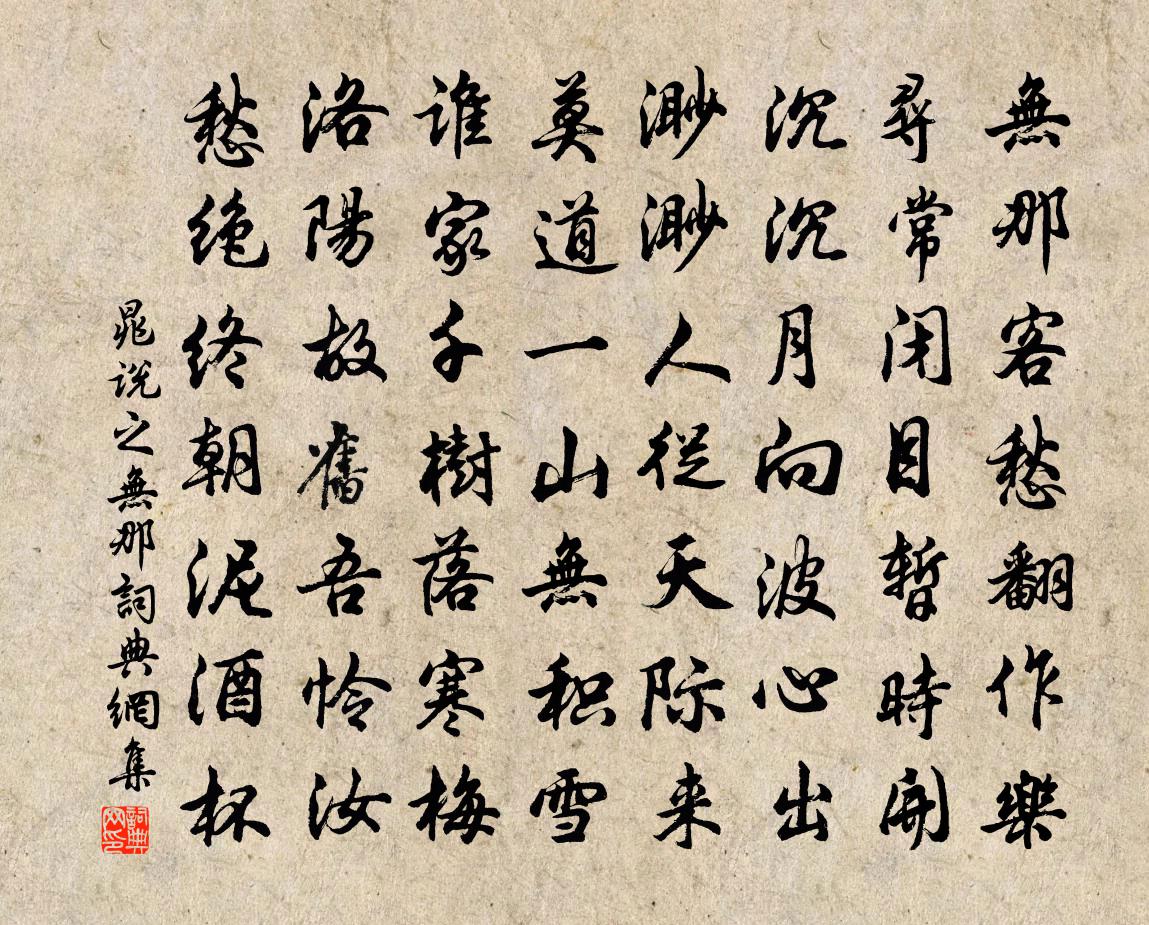 無那客愁翻作樂
尋常閉目暫時開
沉沉月向波心出
渺渺人從天际来
莫道一山無积雪
谁家千樹落寒梅
洛陽故舊吾怜汝
愁绝终朝泥酒杯
晁说之無那詞典網集
詞典
网印